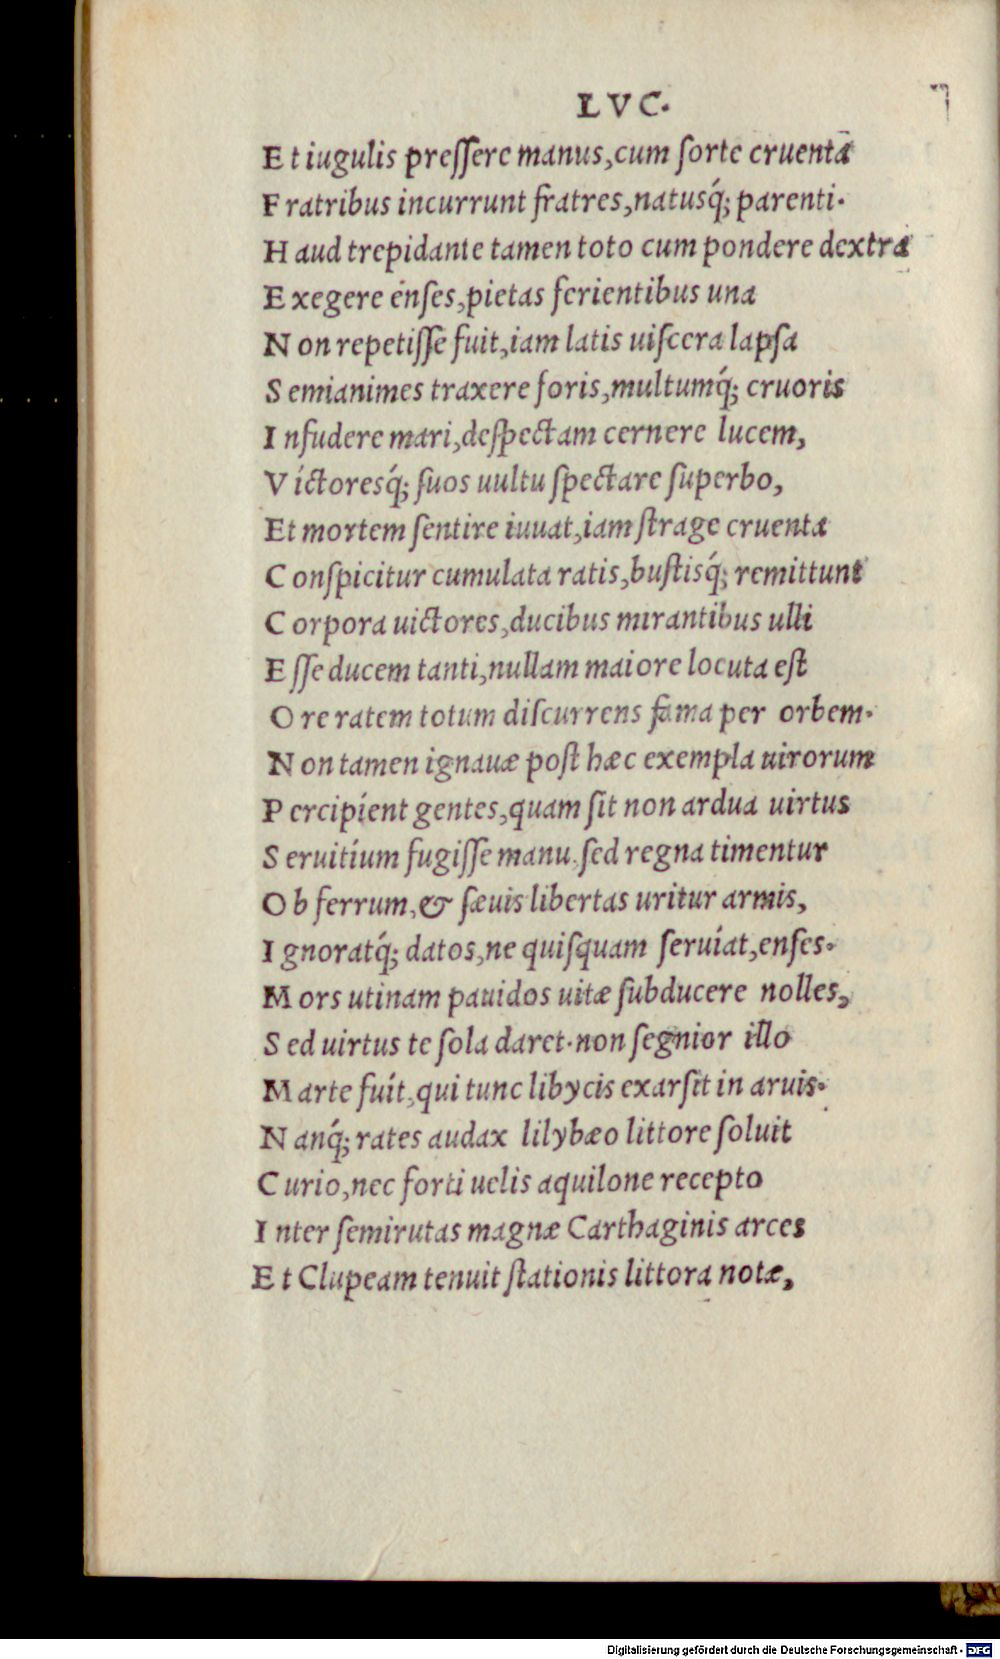 LVC.
E t iugulis preſſere manus,cum ſorte cruenta
F ratribus incurrunt fratres,natusq́; parenti.
H aud trepidante tamen toto cum pondere dextra
E xegere enſes,pietas ferientibus una
N on repetiſſe fuit,iam latis uiſcera lapſa
S emianimes traxere foris,multumq́; cruoris
I nfudere mari,deſpectam cernere lucem,
V ictoresq́; ſuos uultu ſpectare ſuperbo,
Et mortem ſentire iuuat,iam ſtrage cruenta
C onſpicitur cumulata ratis,buſtisq́; remittunt
C orpora uictores,ducibus mirantibus ulli
E ſſe ducem tanti,nullam maiore locuta eſt
O re ratem totum diſcurrens fama per orbem.
N on tamen ignauæ poſt hæc exempla uirorum
P ercipient gentes,quam ſit non ardua uirtus
S eruitium fugiſſe manu.ſed regna timentur
O b ferrum,& ſæuis libertas uritur armis,
I gnoratq́; datos,ne quiſquam ſeruiat,enſes.
M ors utinam pauidos uitæ ſubducere nolles,
S ed uirtus te ſola daret.non ſegnior illo
M arte fuit,qui tunc libycis exarſit in aruis.
N anq́; rates audax lilybæo littore ſoluit
C urio,nec forti uelis aquilone recepto
I nter ſemirutas magnæ Carthaginis arces
E t Clupeam tenuit ſtationis littora notæ,
Digitalisierung gefördert durch die Deutsche Forschungsgemeinschaft - DFG